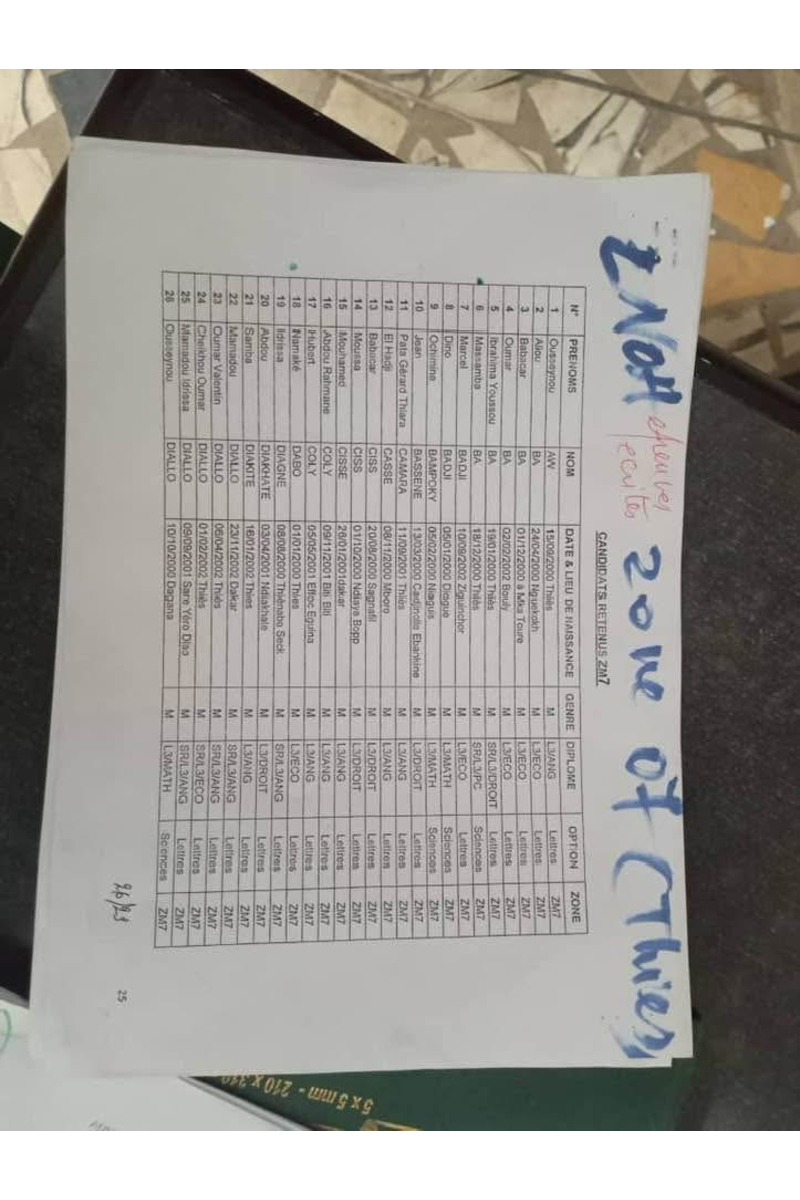 ENOA epreuves ecrites zone of (Thies)
CANDIDATS RETENUS ZM7
N° PRENOMS NOM DATE & LIEU DE NAISSANCE GENRE DIPLOME OPTION ZONE
1 Ousseynou AW 15/09/2000 Thiès M L3/ANG Lettres ZM7
2 Aliou BA 24/04/2000 Nguekokh M L3/ECO Lettres ZM7
3 Babacar BA 01/12/2000 à Mka Toure M L3/ECO Lettres ZM7
4 Oumar BA 02/02/2002 Bouly M L3/ECO Lettres ZM7
5 Ibrahima Youssou BA 19/01/2000 Thiès M SR/L3/DROIT Lettres ZM7
6 Massamba BA 18/12/2000 Thiès M SR/L3/PC Sciences ZM7
7 Marcel BADJI 10/09/2002 Ziguinchor M L3/ECO Lettres ZM7
8 Dino BADJI 05/01/2000 Diogue M L3/MATH Sciences ZM7
9 Ochimine BAMPOKY 05/02/2000 Niaguis M L3/MATH Sciences ZM7
10 Jean BASSENE 13/03/2000 Cadjinolle Ebankine M L3/DROIT Lettres ZM7
11 Pata Gérard Thiara CAMARA 11/09/2001 Thiès M L3/ANG Lettres ZM7
12 El Hadji CASSE 08/11/2000 Mboro M L3/ANG Lettres ZM7
13 Babacar CISS 20/08/2000 Sagnafil M L3/DROIT Lettres ZM7
14 Moussa CISS 01/10/2000 Ndiaye Bopp M L3/DROIT Lettres ZM7
15 Mouhamed CISSE 26/01/2001dakar M L3/ANG Lettres ZM7
16 Abdou Rahmane COLY 09/11/2001 Biti Biti M L3/ANG Lettres ZM7
17 Hubert COLY 05/05/2001 Effoc Eguina M L3/ANG Lettres ZM7
18 Namaké DABO 01/01/2000 Thies M L3/ECO Lettres ZM7
19 Idrissa DIAGNE 08/08/2000 Thiénabo Seck M SR/L3/ANG Lettres ZM7
20 Abdou DIAKHATE 03/04/2001 Ndiakhale M L3/DROIT Lettres ZM7
21 Samba DIAKITE 16/01/2002 Thies M L3/ANG Lettres ZM7
22 Mamadou DIALLO 23/11/2002 Dakar M SR/L3/ANG Lettres ZM7
23 Oumar Valentin DIALLO 06/04/2002 Thiès M SR/L3/ANG Lettres ZM7
24 Cheikhou Oumar DIALLO 01/02/2002 Thiès M SR/L3/ECO Lettres ZM7
25 Mamadou Idrissa DIALLO 09/09/2001 Sare Yéro Diao M SR/L3/ANG Lettres ZM7
26 Ousseynou DIALLO 10/10/2000 Dagana M L3/MATH Sciences ZM7
26/23
25
5 x 5 mm - 210 x 310